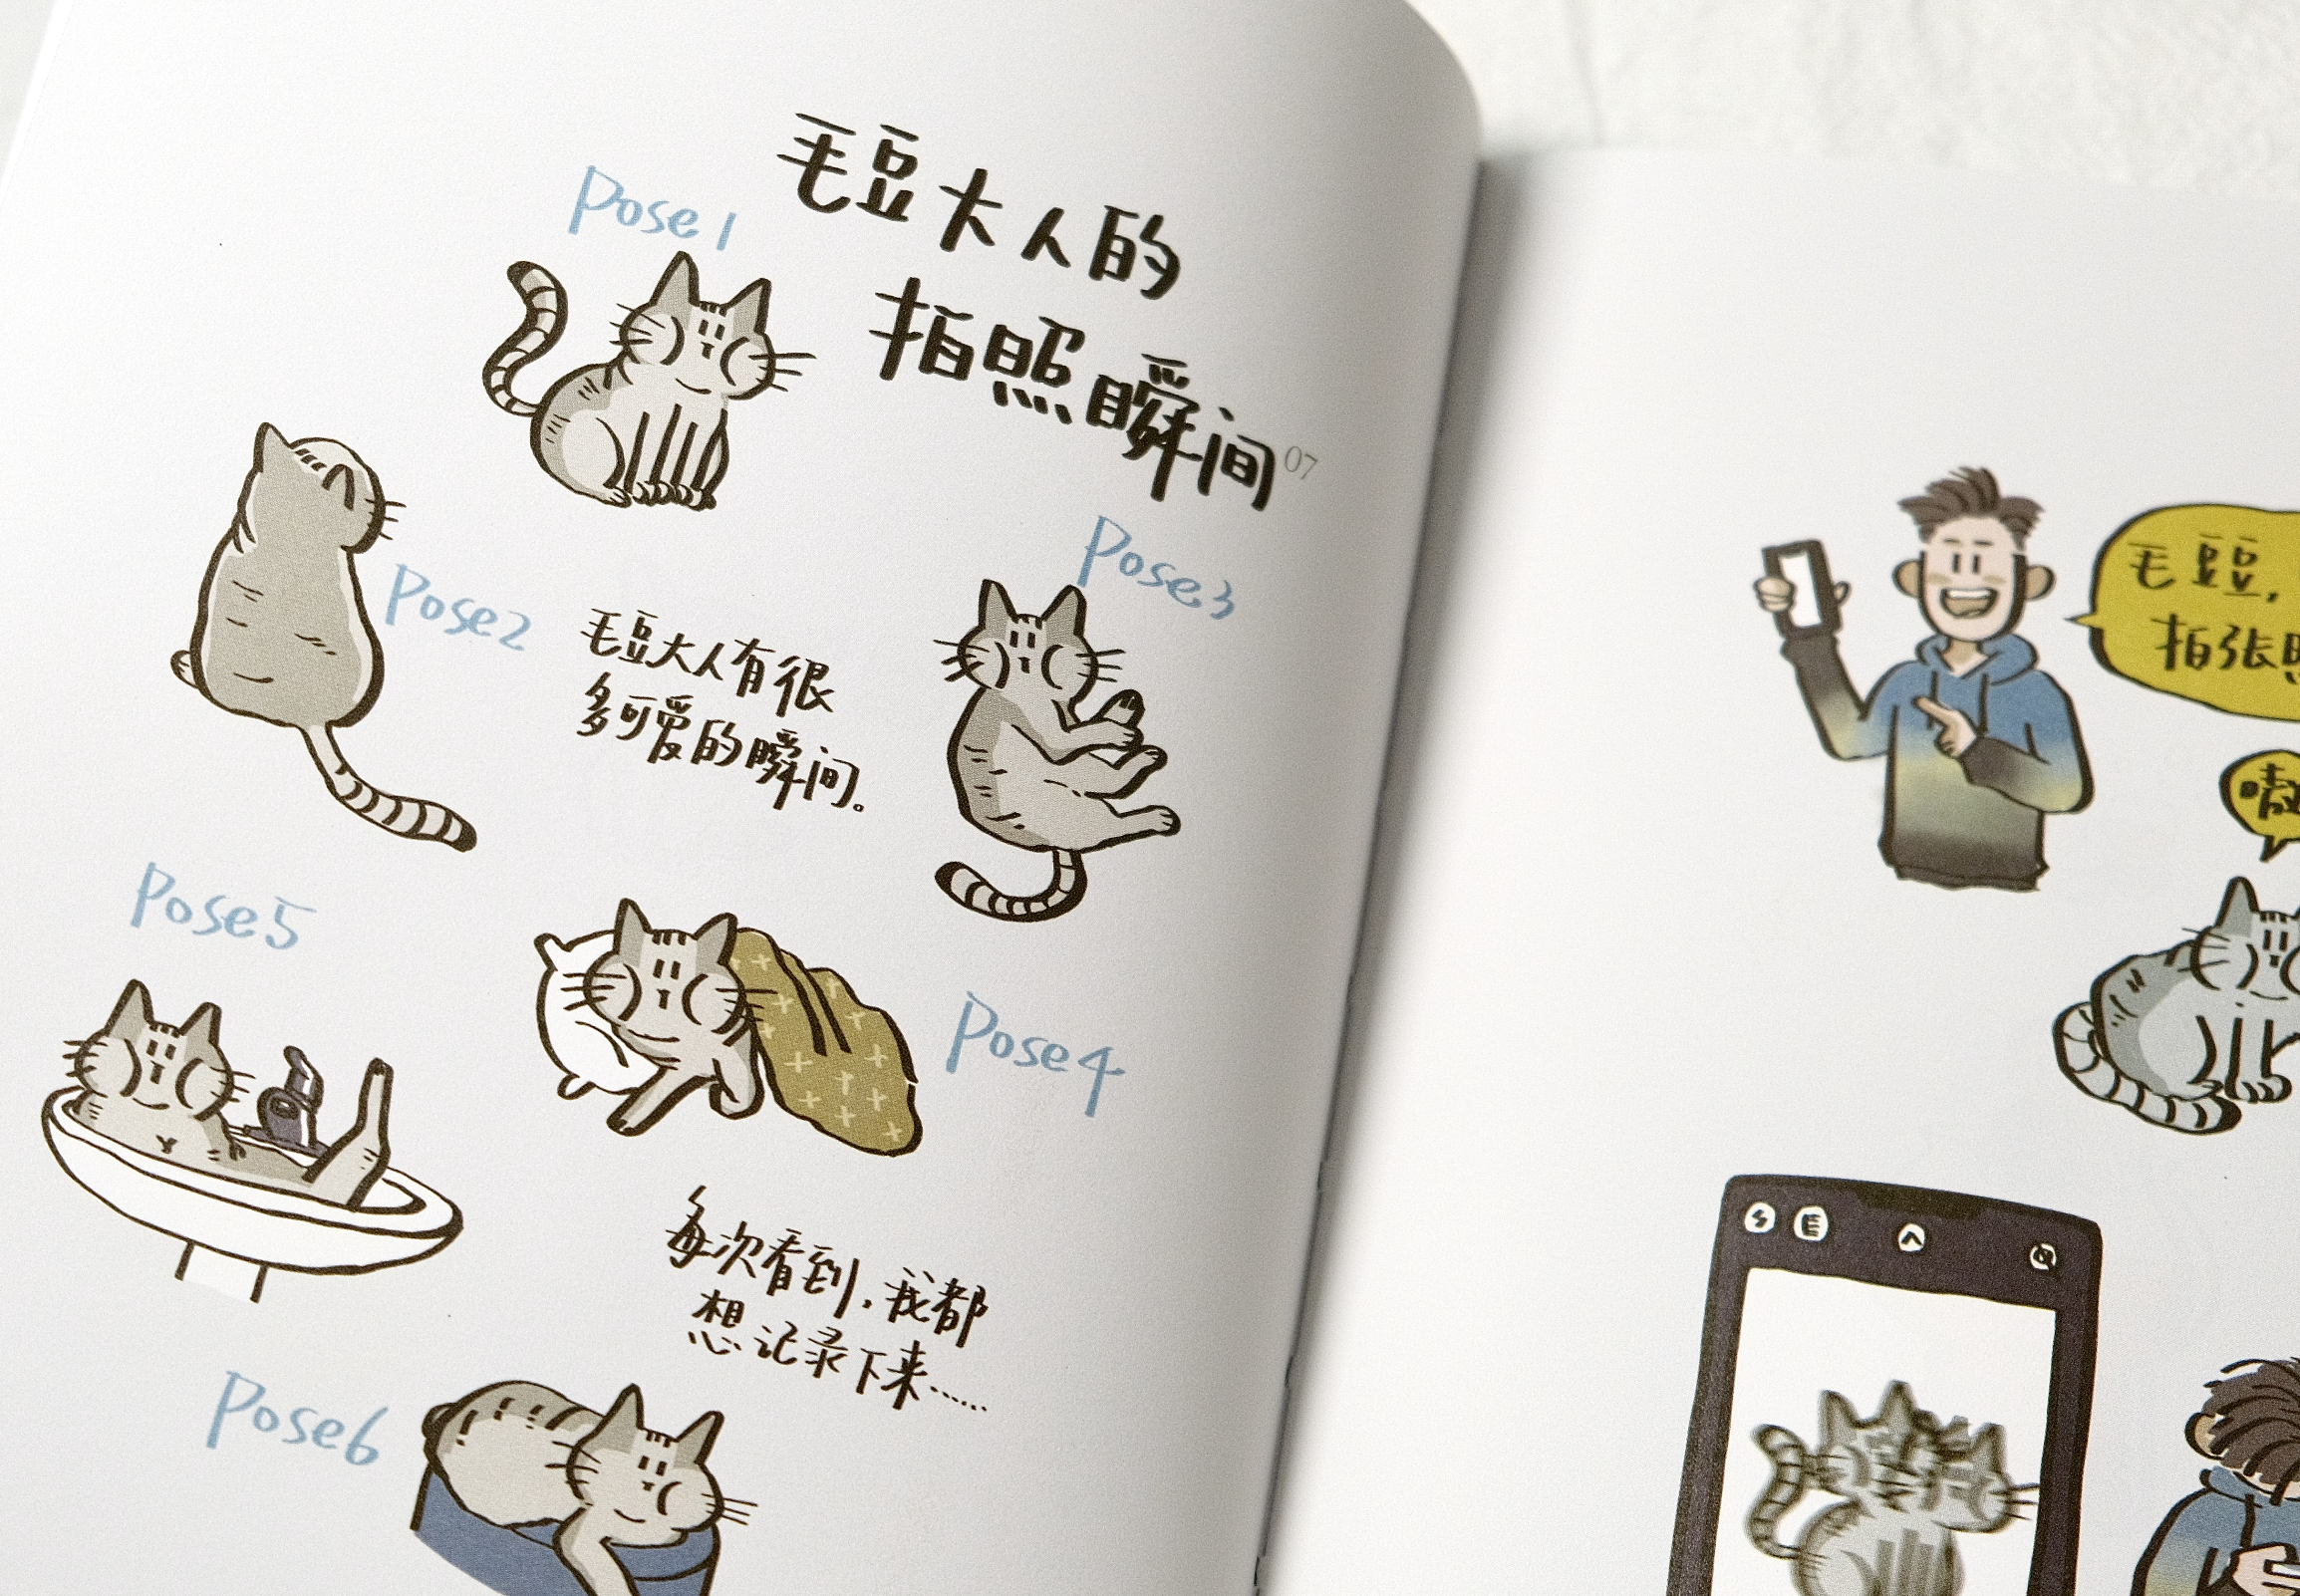 毛豆大人的
拍照瞬间
07
Pose1
Pose2
Pose3
毛豆大人有很
多可爱的瞬间。
Pose5
Pose4
每次看到,我都
想记录下来……
Pose6
毛豆,
拍张